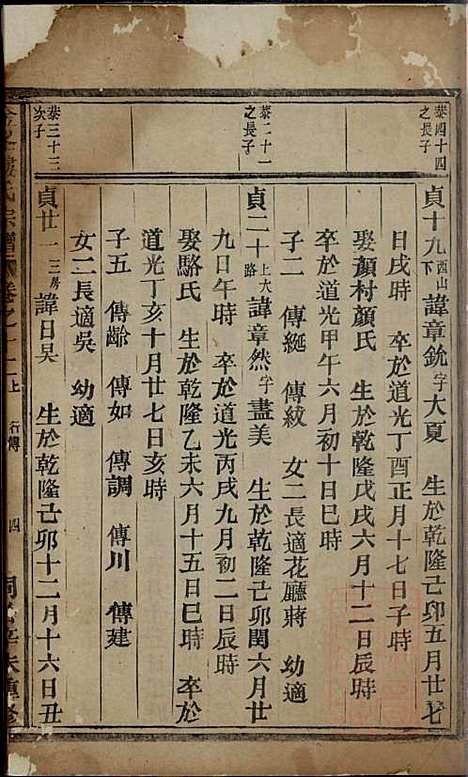 泰四十四
之長子
貞十九西山下諱章銑字大夏 生於乾隆己卯五月廿七
日戌時 卒於道光丁酉正月十七日子時
娶顏村顏氏 生於乾隆戊戌六月十二日辰時
卒於道光甲午六月初十日巳時
子二 傳綖 傳紋 女二長適花廳蔣 幼適
泰二十一
之長子
貞二十上大路諱章然字盡美 生於乾隆己卯閏六月廿
九日午時 卒於道光丙戌九月初二日辰時
娶駱氏 生於乾隆乙未六月十五日巳時 卒於
道光丁亥十月廿七日亥時
子五 傳齡 傳如 傳調 傳川 傳建
女二長適吳 幼適
泰三十三
次子
貞廿一三房諱日昊 生於乾隆己卯十二月十六日丑
氏宗譜 卷之十二上 行傳 四
重修